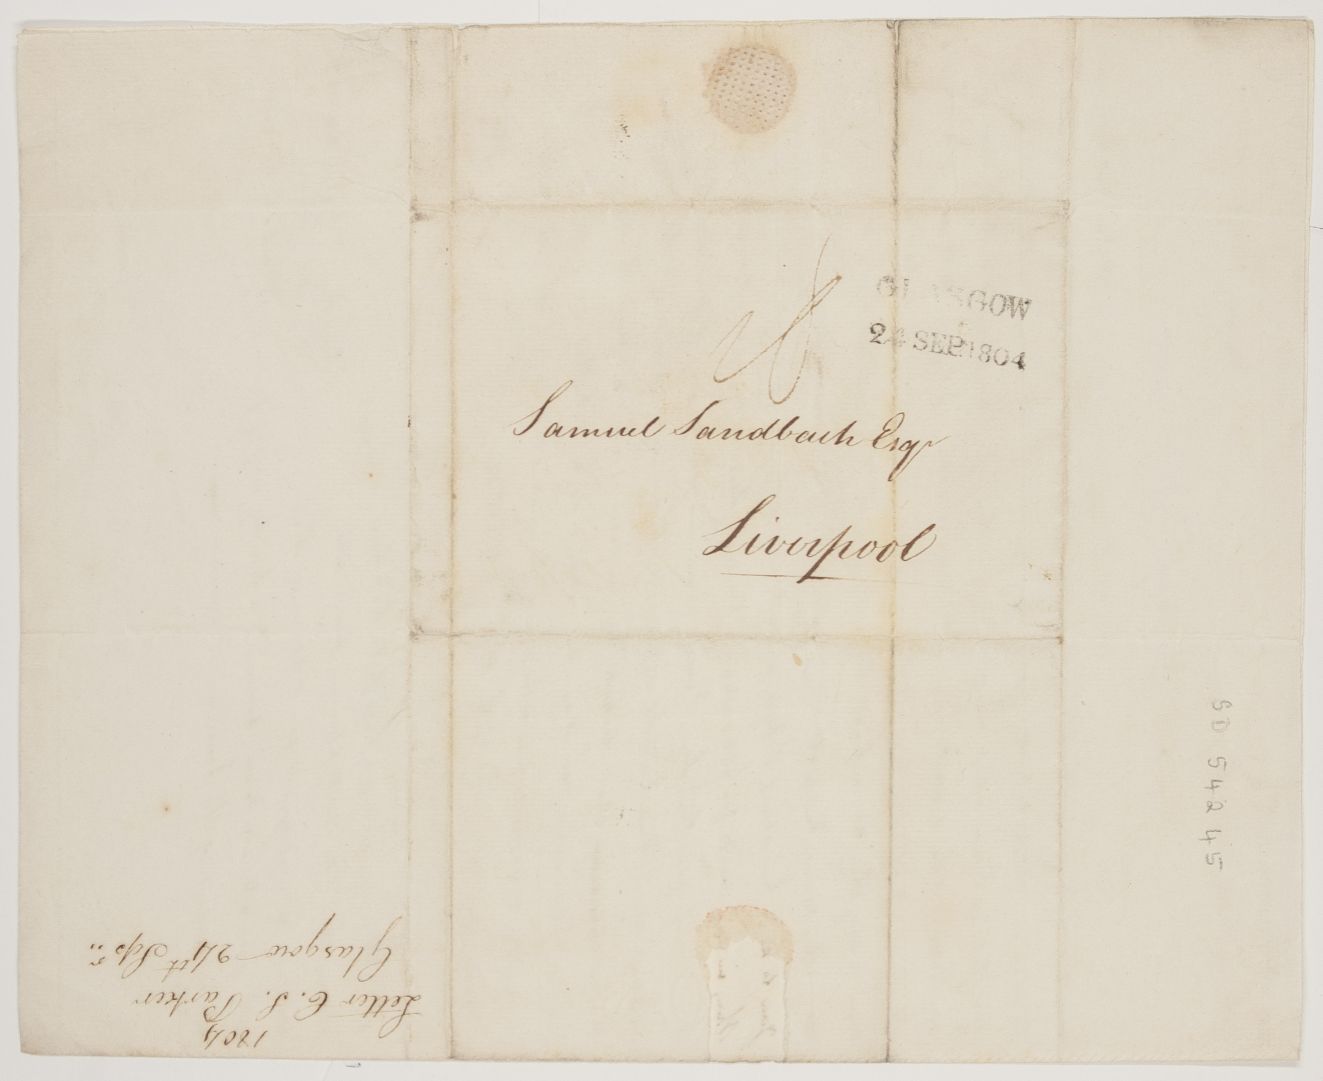 GLASGOW
24 SEP 1804
Samuel Sandbach Esqr
Liverpool
SD 54245
1804
Letter C. S. Parker
Glasgow 24th Sepr..